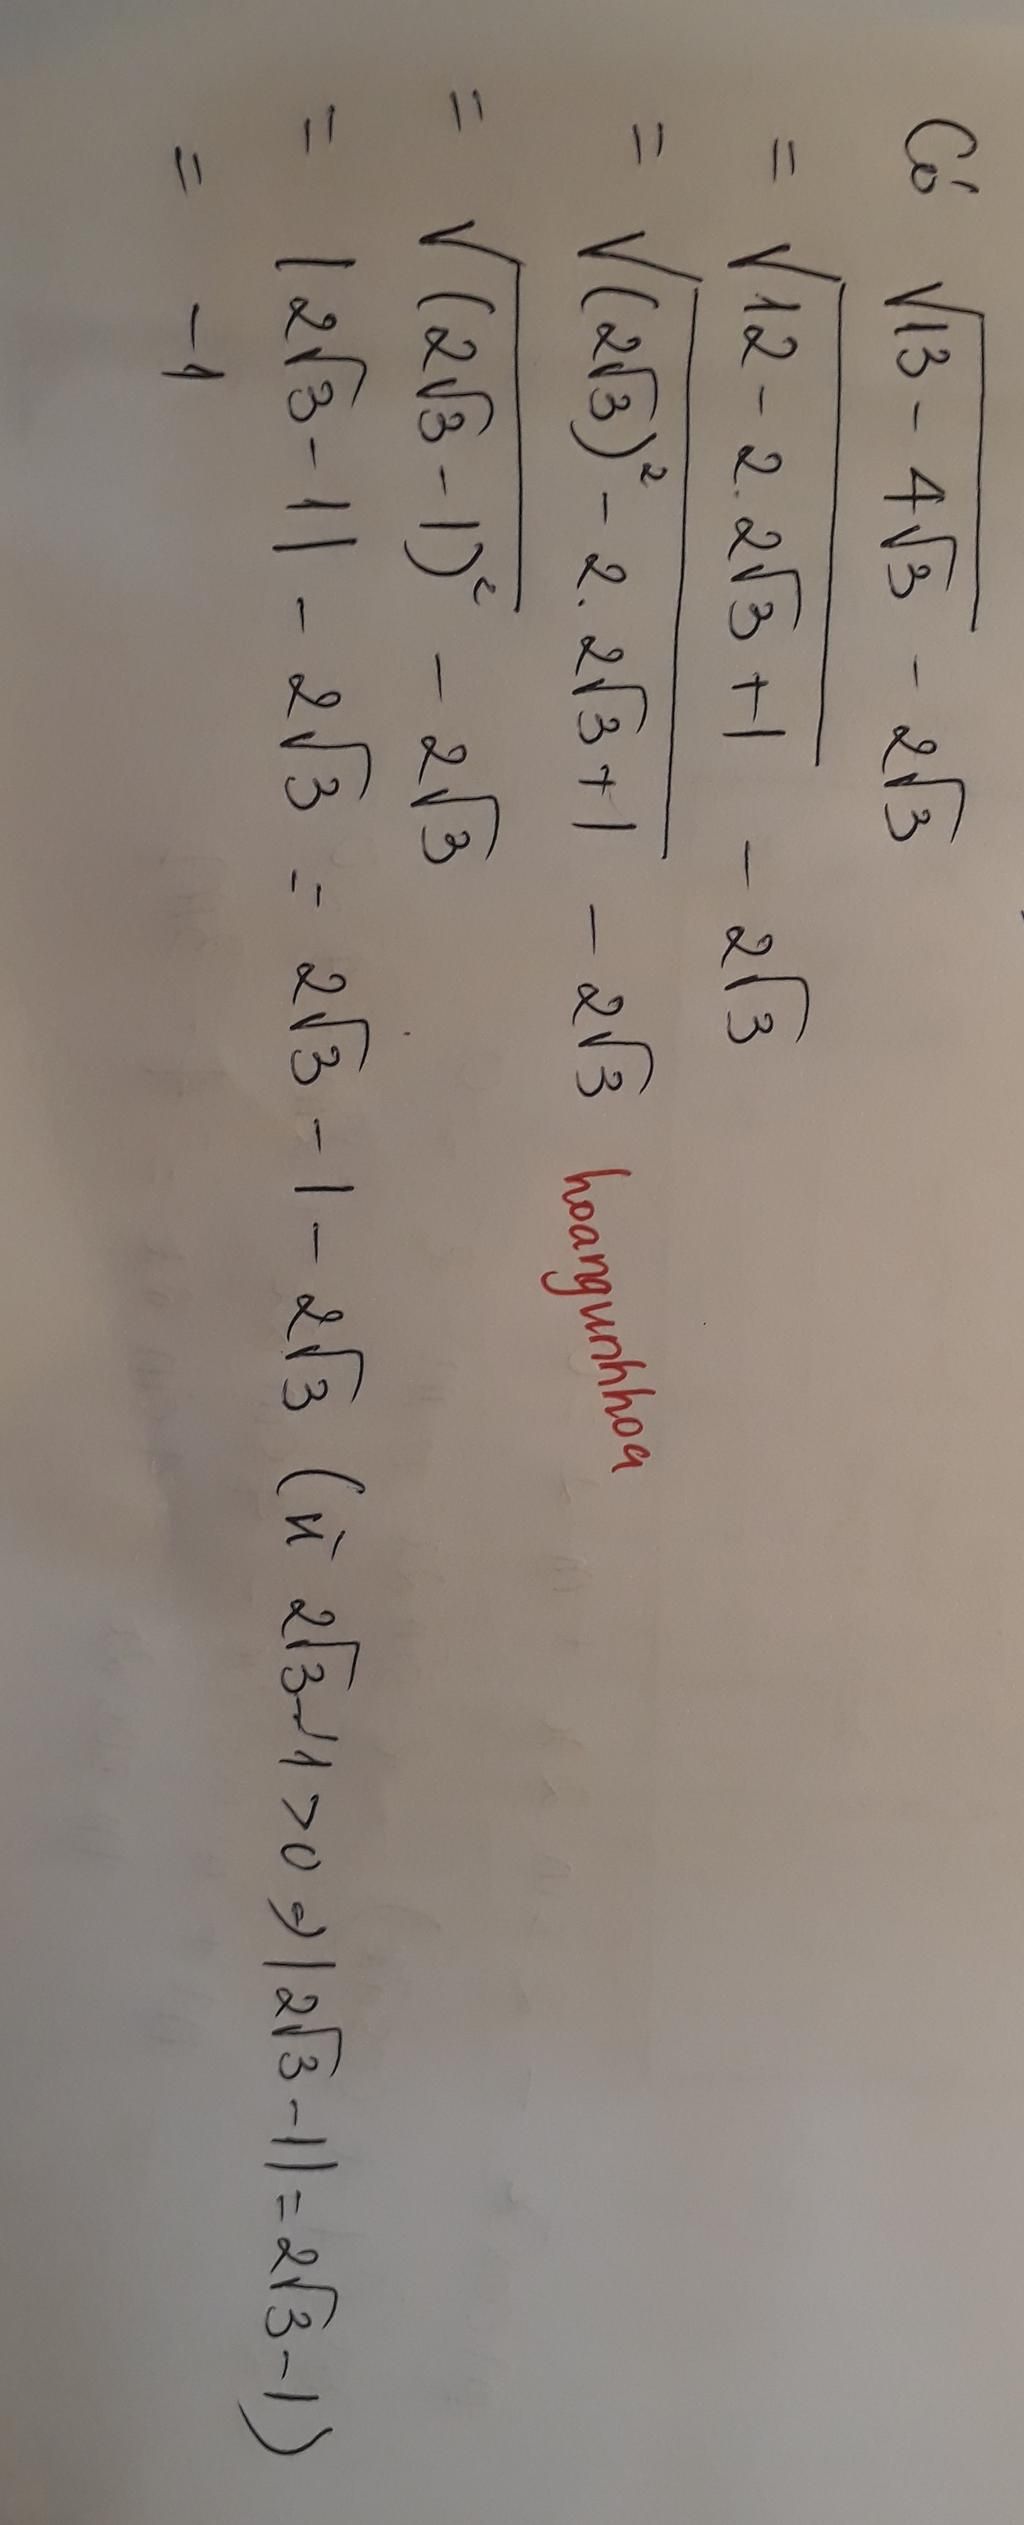 Có √13 - 4√3 - 2√3
= √12 - 2.2√3 + 1 - 2√3
= √(2√3)² - 2.2√3 + 1 - 2√3
hoangunhhoa
= √(2√3 - 1)² - 2√3
= |2√3 - 1| - 2√3 = 2√3 - 1 - 2√3 (vì 2√3 - 1 > 0 => |2√3 - 1| = 2√3 - 1)
= -1